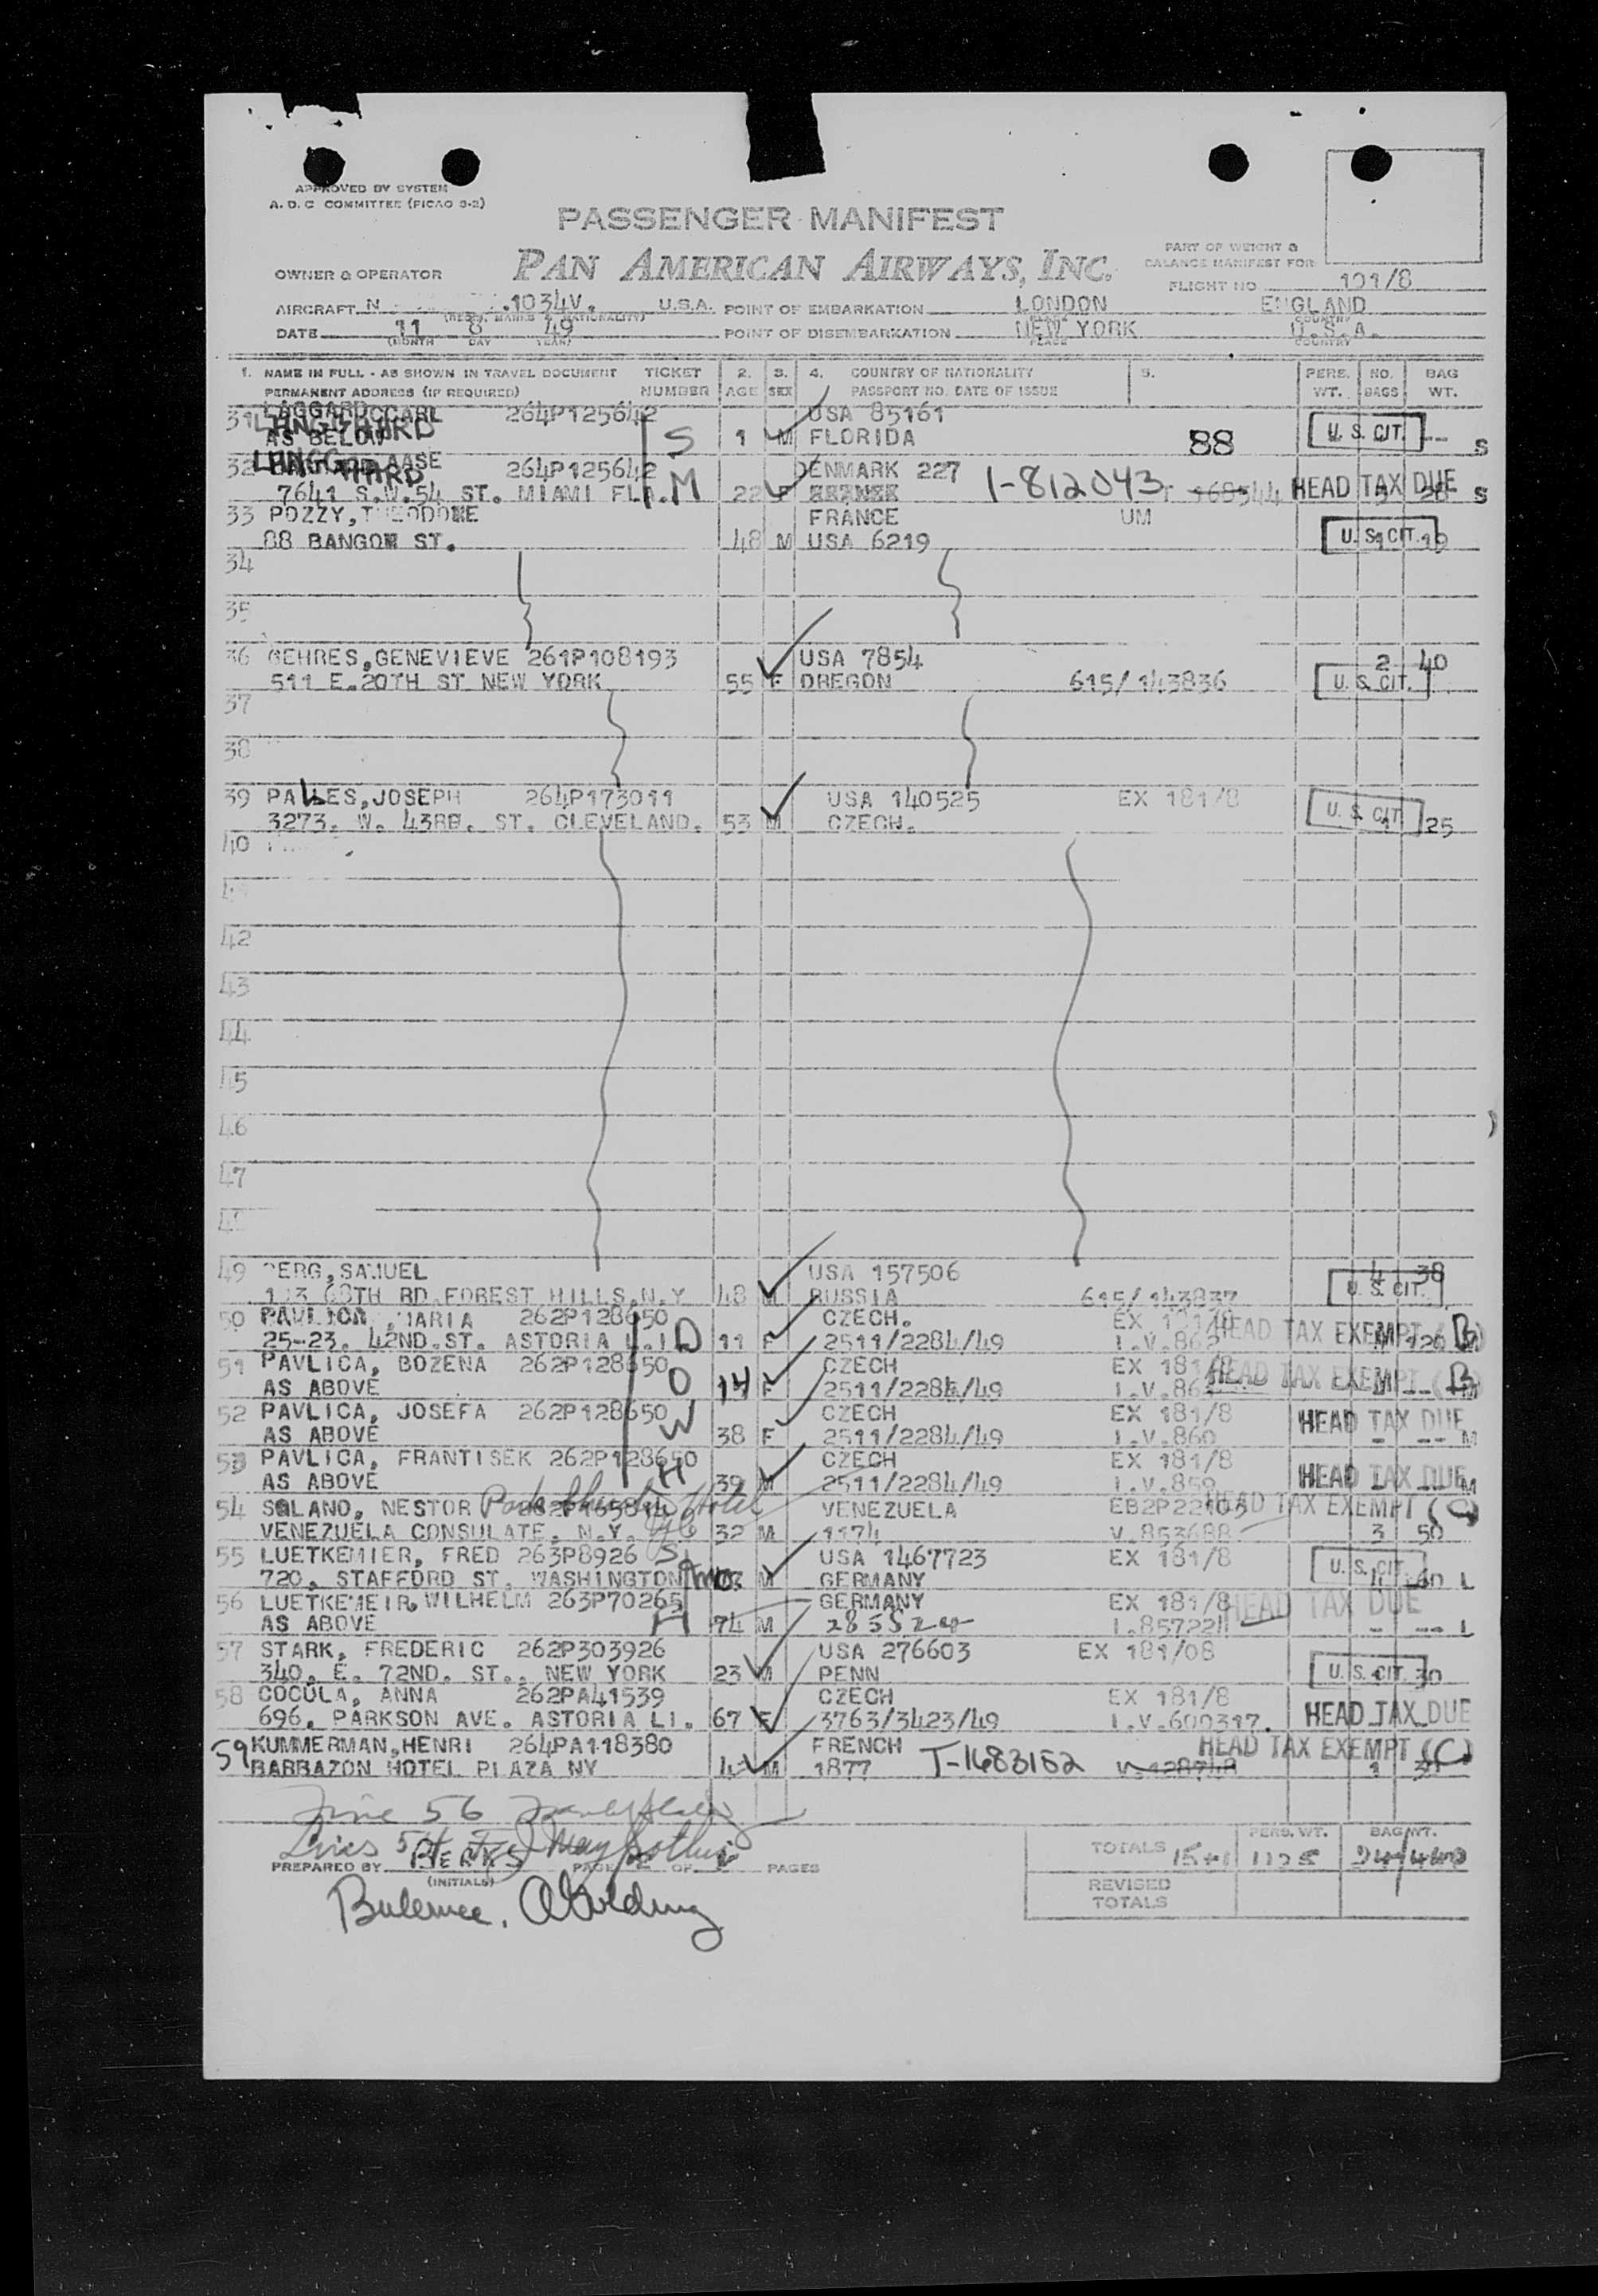 APPROVED BY SYSTEM
A. D. C COMMITTEE (PICAO 3-2)
PASSENGER MANIFEST
PAN AMERICAN AIRWAYS, INC.
PART OF WEIGHT &
BALANCE MANIFEST FOR
OWNER & OPERATOR
FLIGHT NO 101/8
AIRCRAFT N 1034V. U.S.A. POINT OF EMBARKATION LONDON ENGLAND
(REGN. MARKS & NATIONALITY) PLACE COUNTRY
DATE 11 8 49 POINT OF DISEMBARKATION NEW YORK U.S.A.
(MONTH DAY YEAR) PLACE COUNTRY
1. NAME IN FULL - AS SHOWN IN TRAVEL DOCUMENT TICKET 2. 3. 4. COUNTRY OF NATIONALITY 5. PERS. NO. BAG
PERMANENT ADDRESS (IF REQUIRED) NUMBER AGE SEX PASSPORT NO. DATE OF ISSUE WT. BAGS WT.
31 CARL 264P125642 USA 85161
AS BELOW S 1 M FLORIDA 88 U. S. CIT. -- S
32 AASE 264P125642 DENMARK 227
7641 S.W.54 ST. MIAMI FLA. M 22 F 1-812043 HEAD TAX DUE S
33 POZZY, FRANCE UM
88 BANGOR ST. 48 M USA 6219 U. S. CIT. 19
34
35
36 GEHRES,GENEVIEVE 261P108193 USA 7854 2 40
511 E.20TH ST NEW YORK 55 F OREGON 615/143836 U. S. CIT.
37
38
39 PALLES,JOSEPH 264P173011 USA 140525 EX 181/8
3273. W. 43RD. ST. CLEVELAND. 53 M CZECH. U. S. CIT 25
40
42
43
44
45
46
47
49 BERG,SAMUEL USA 157506 4 38
68TH RD.FOREST HILLS.N.Y 48 M RUSSIA 615/143837 U. S. CIT.
50 PAVLICA, MARIA 262P128650 CZECH. EX 181/8 HEAD TAX EXEMPT (B)
25-23. 42ND.ST. ASTORIA L.I D 11 F 2511/2284/49 I.V.862
51 PAVLICA, BOZENA 262P128650 CZECH EX 181/8 HEAD TAX EXEMPT (B)
AS ABOVE D 14 F 2511/2284/49 M
52 PAVLICA, JOSEFA 262P128650 CZECH EX 181/8 HEAD TAX DUE
AS ABOVE W 38 F 2511/2284/49 I.V.860 - -- M
53 PAVLICA, FRANTISEK 262P128650 CZECH EX 181/8
AS ABOVE H 39 M 2511/2284/49 I.V.859 HEAD TAX DUE M
54 SOLANO, NESTOR Hotel VENEZUELA HEAD TAX EXEMPT (C)
VENEZUELA CONSULATE. N.Y. 32 M 1174 V.853688 3 50
55 LUETKEMIER, FRED 263P8926 S USA 1467723 EX 181/8 U. S. CIT
720. STAFFORD ST. WASHINGTON M GERMANY 60 L
56 LUETKEMEIR, WILHELM 263P70265 GERMANY EX 181/8 HEAD TAX DUE
AS ABOVE H 74 M I.857221 - -- L
57 STARK, FREDERIC 262P303926 USA 276603 EX 181/08
340. E. 72ND. ST., NEW YORK 23 M PENN U. S. CIT. 30
58 COCULA, ANNA 262PA41539 CZECH EX 181/8
696. PARKSON AVE. ASTORIA LI. 67 F 3763/3423/49 I.V.600317. HEAD TAX DUE
59 KUMMERMAN,HENRI 264PA118380 FRENCH HEAD TAX EXEMPT (C)
BARBAZON HOTEL PLAZA NY M 1877 T-1683152 1
56
PREPARED BY BERKS PAGE OF PAGES
(INITIALS)
TOTALS PERS. WT. BAG WT.
REVISED
TOTALS